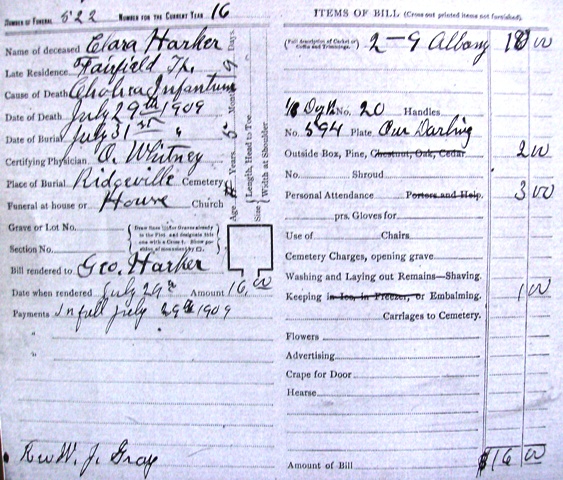 NUMBER OF FUNERAL 522 NUMBER FOR THE CURRENT YEAR 16
Name of deceased Clara Harker
Late Residence Fairfield Tp.
Cause of Death Cholera Infantum
Date of Death July 29th 1909
Date of Burial July 31st "
Certifying Physician O. Whitney
Place of Burial Ridgeville Cemetery
Funeral at house or House Church
Age Years, 5 Months 9 Days.
Size Length, Head to Toe.
Width at Shoulder.
Grave or Lot No.
Section No.
Bill rendered to Geo. Harker
Date when rendered July 29th Amount 16,00
Payments In full July 29th 1909
"
"
Rev W. J. Gray
ITEMS OF BILL (Cross out printed items not furnished).
(Full description of Casket or Coffin and Trimmings. 2-9 Albany 10 00
1/6 Doz No. 20 Handles
No. 594 Plate Our Darling
Outside Box, Pine, Chestnut, Oak, Cedar 2 00
No. Shroud
Personal Attendance Porters and Help. 3 00
prs. Gloves for
Use of Chairs
Cemetery Charges, opening grave
Washing and Laying out Remains—Shaving.
Keeping in Ice, in Freezer, or Embalming. 1 00
Carriages to Cemetery.
Flowers
Advertising
Crape for Door
Hearse
Amount of Bill $16 00